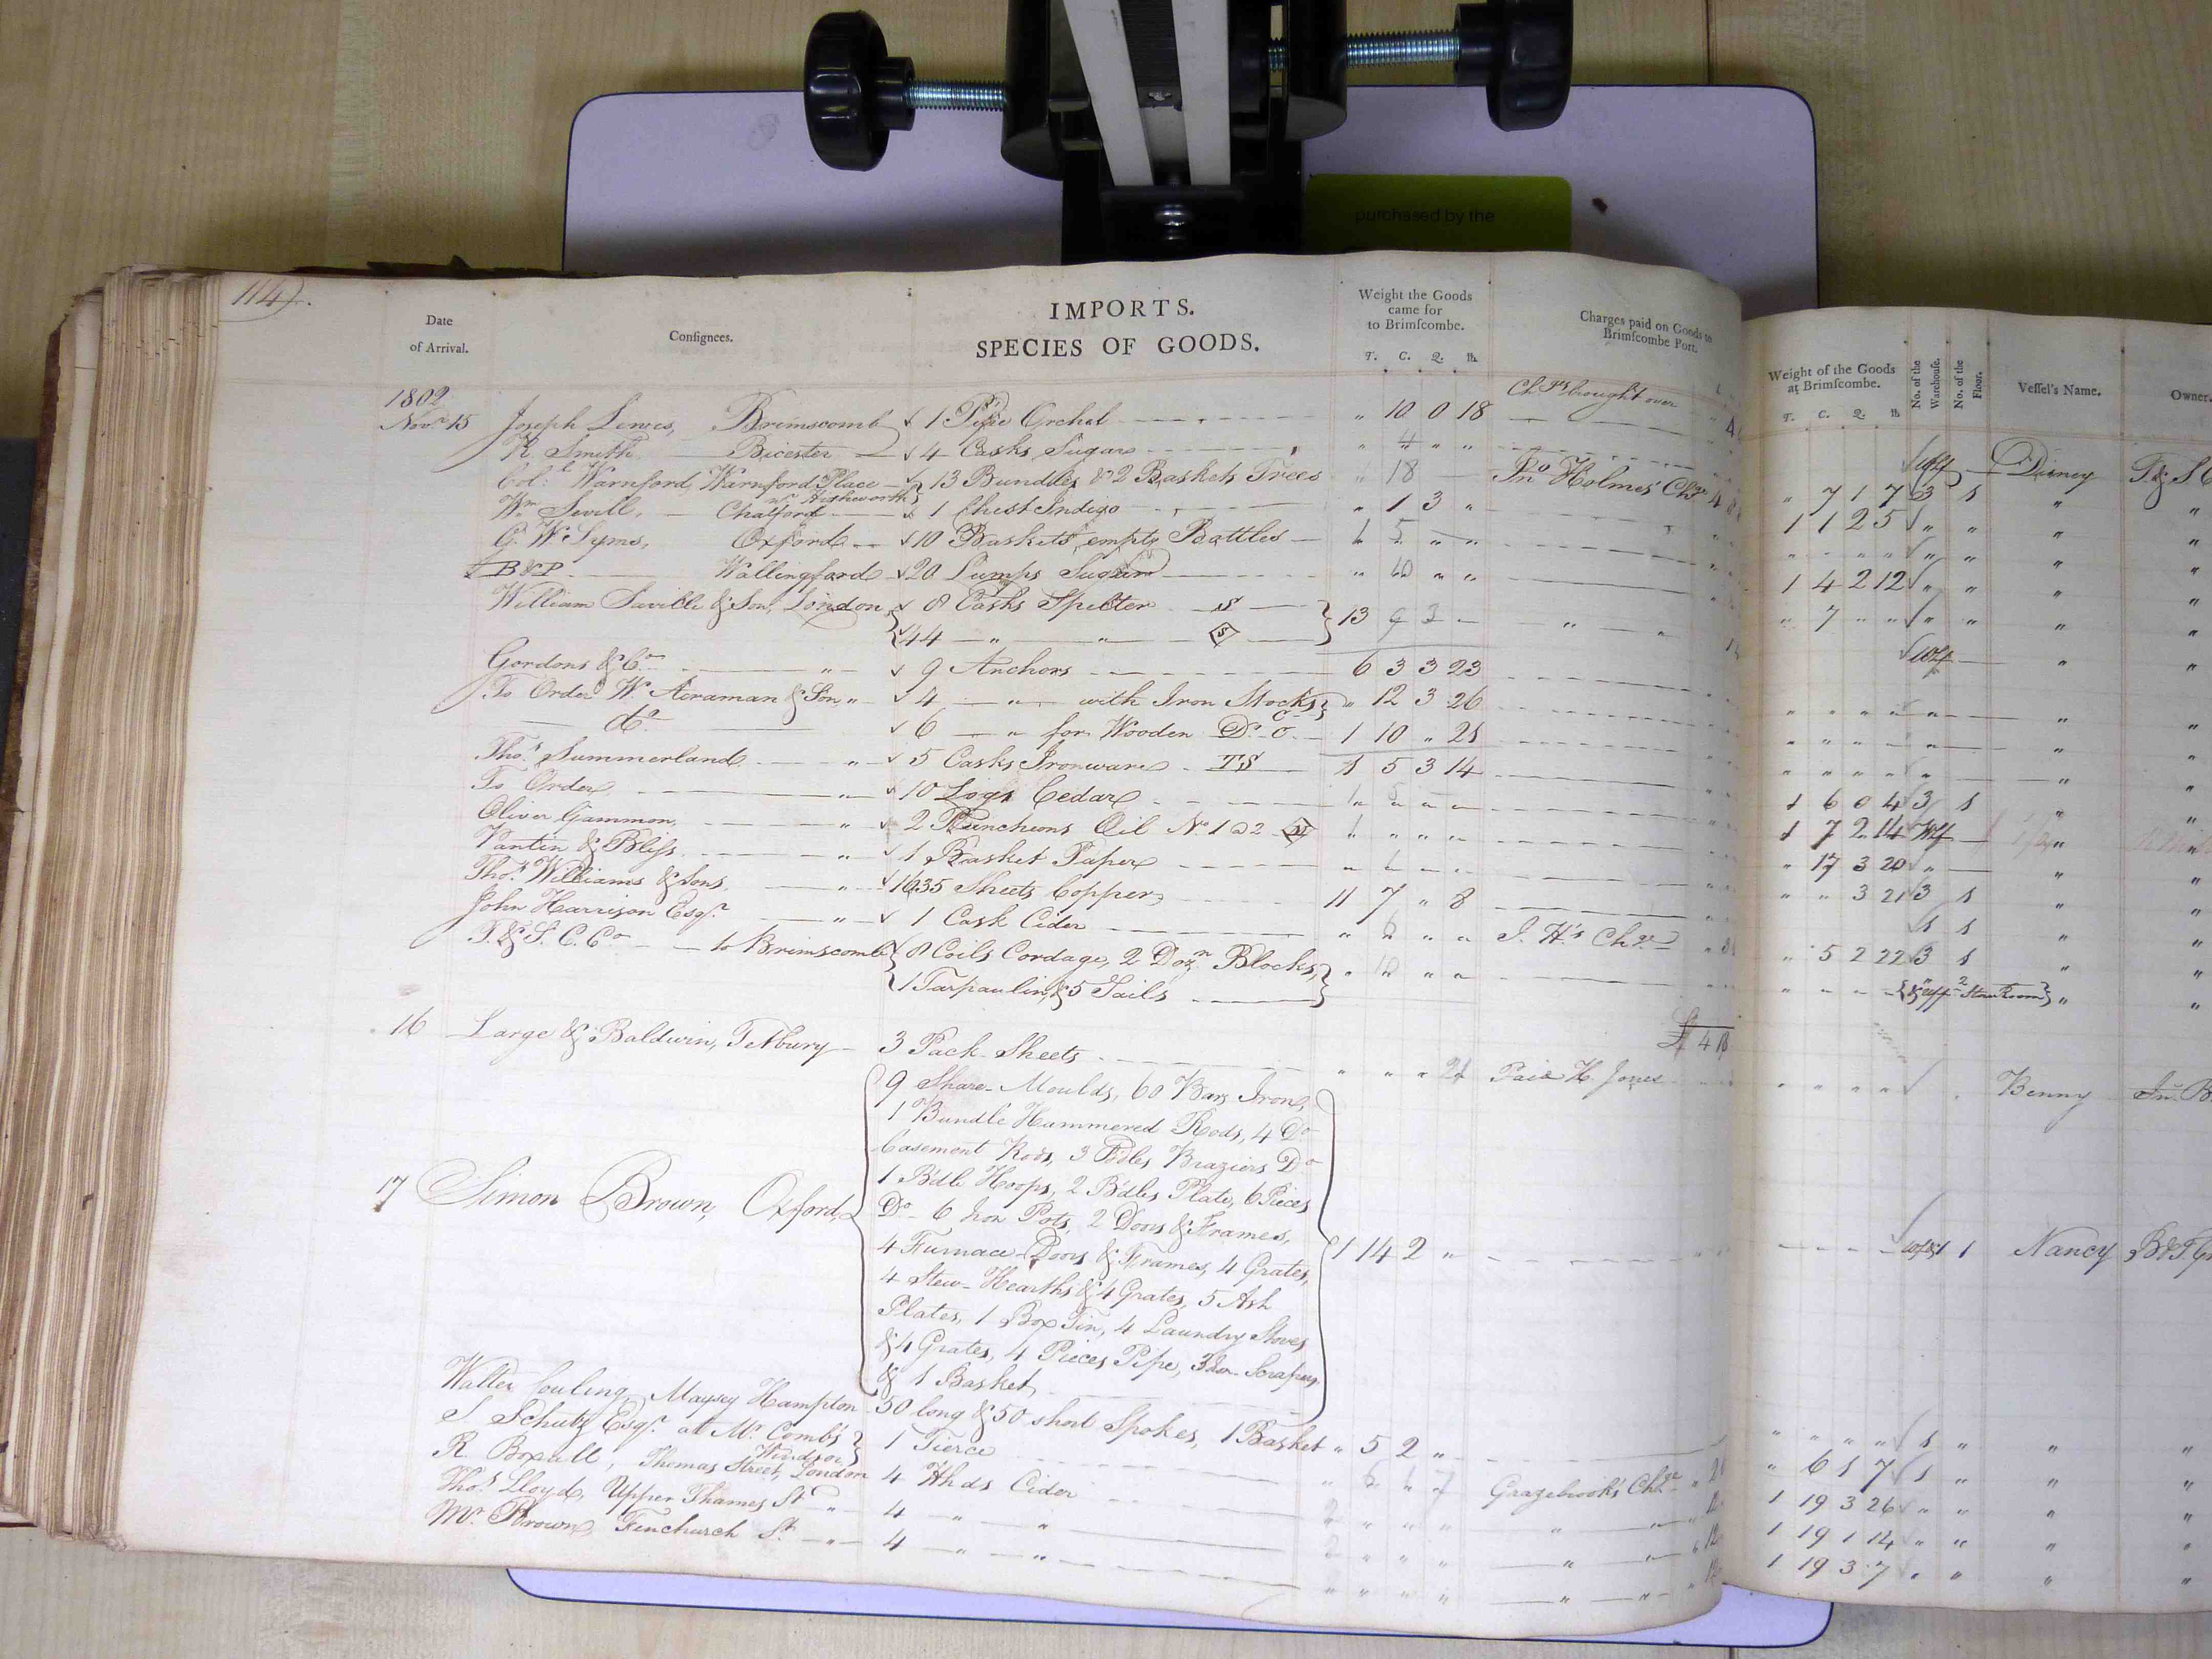 purchased by the
114.
Date of Arrival.
Consignees.
IMPORTS.
SPECIES OF GOODS.
Weight the Goods came for to Brimscombe.
T. C. Q. lb
Charges paid on Goods to Brimscombe Port.
Weight of the Goods at Brimscombe.
T. C. Q. lb
No. of the Warehouse.
No. of the Floor.
Vessel's Name.
Owner
1802
Chgs brought over
Novr 15 Joseph Lewes, Brimscomb 1 Pipe Orchal " 10 0 18
R. Smith Bicester 4 Casks Sugar " 4 " "
Colt Warnford, Warnford Place nr Highworth 13 Bundles & 2 Baskets Trees " 18 Jno Holmes' Chge
Wm Sevill, Chalford 1 Chest Indigo " 1 3 "
G. W. Syms, Oxford 10 Baskets empty Bottles 1 5 " "
B&P Wallingford 20 Lumps Sugar " 10 " "
William Saville & Son, London 8 Casks Spelter S
44 " " S 13 9 3
Gordons & Co " 9 Anchors 6 3 3 23
To Order W. Acraman & Son " 4 " with Iron Stocks " 12 3 26
do 6 " for Wooden Do 1 10 " 21
Thos Summerland " 5 Casks Ironware TS 1 5 3 14
To Order " 10 Logs Cedar
Oliver Gammon " 2 Puncheons Oil No 1 @ 2 1 " " "
Vantin & Bliss " 1 Basket Paper
Thos Williams & Sons " 1635 Sheets Copper 11 7 " 8
John Harrison Esqr " 1 Cask Cider J. H.'s Chge
T. & S. C. Co to Brimscomb 8 Coils Cordage, 2 Dozn Blocks, " 10 " "
1 Tarpaulin, & 5 Sails
16 Large & Baldwin, Tetbury 3 Pack Sheets " " " 21 Paid H. Jones
17 Simon Brown, Oxford,
9 Share-Moulds, 60 Bars Iron,
1 Bundle Hammered Rods, 4 Do
Casement Rods, 3 Bdles Braziers Do
1 Bdle Hoops, 2 Bdles Plate, 6 Pieces
Do 6 Iron Pots, 2 Doors & Frames,
4 Furnace Doors & Frames, 4 Grates, 1 14 2 "
4 Stew-Hearths & 4 Grates, 5 Ash
Plates, 1 Box Tin, 4 Laundry Stoves
& 4 Grates, 4 Pieces Pipe, 3 Iron Scrapers
& 1 Basket,
Walter Couling, Maysey Hampton 50 long & 50 short Spokes, 1 Basket " 5 2 "
S. Schutz Esqr. at Mr. Comb's Windsor 1 Tierce
R. Boxall, Thomas Street, London 4 Hhds Cider Grazebrook's Chge
Thos Lloyd, Upper Thames St " 4 " "
Mr. Brown, Fenchurch St. " 4 " "
Whf Disney T & S C
" 7 1 7 3 1 " "
1 1 2 5 " " " "
" " " " " " " "
1 4 2 12 " " " "
" 7 " " " " " "
Whf " "
1 6 0 4 3 1 " "
1 7 2 14 Whf " "
" 17 3 20 " " "
" " 3 21 3 1 " "
1 1 " "
" 5 2 22 3 1 " "
Store Room " "
Benny Jn. B
1 Nancy B & T G
" " " " 1 " " "
" 6 1 7 1 " " "
1 19 3 26 " " " "
1 19 1 14 " " " "
1 19 3 7 " " " "